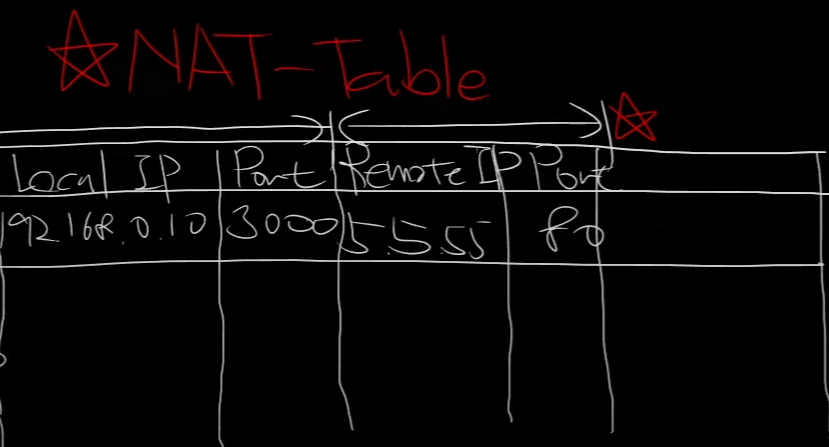 ☆NAT-Table
Local IP Port Remote IP Port
192.168.0.10 3000 5.5.5.5 80